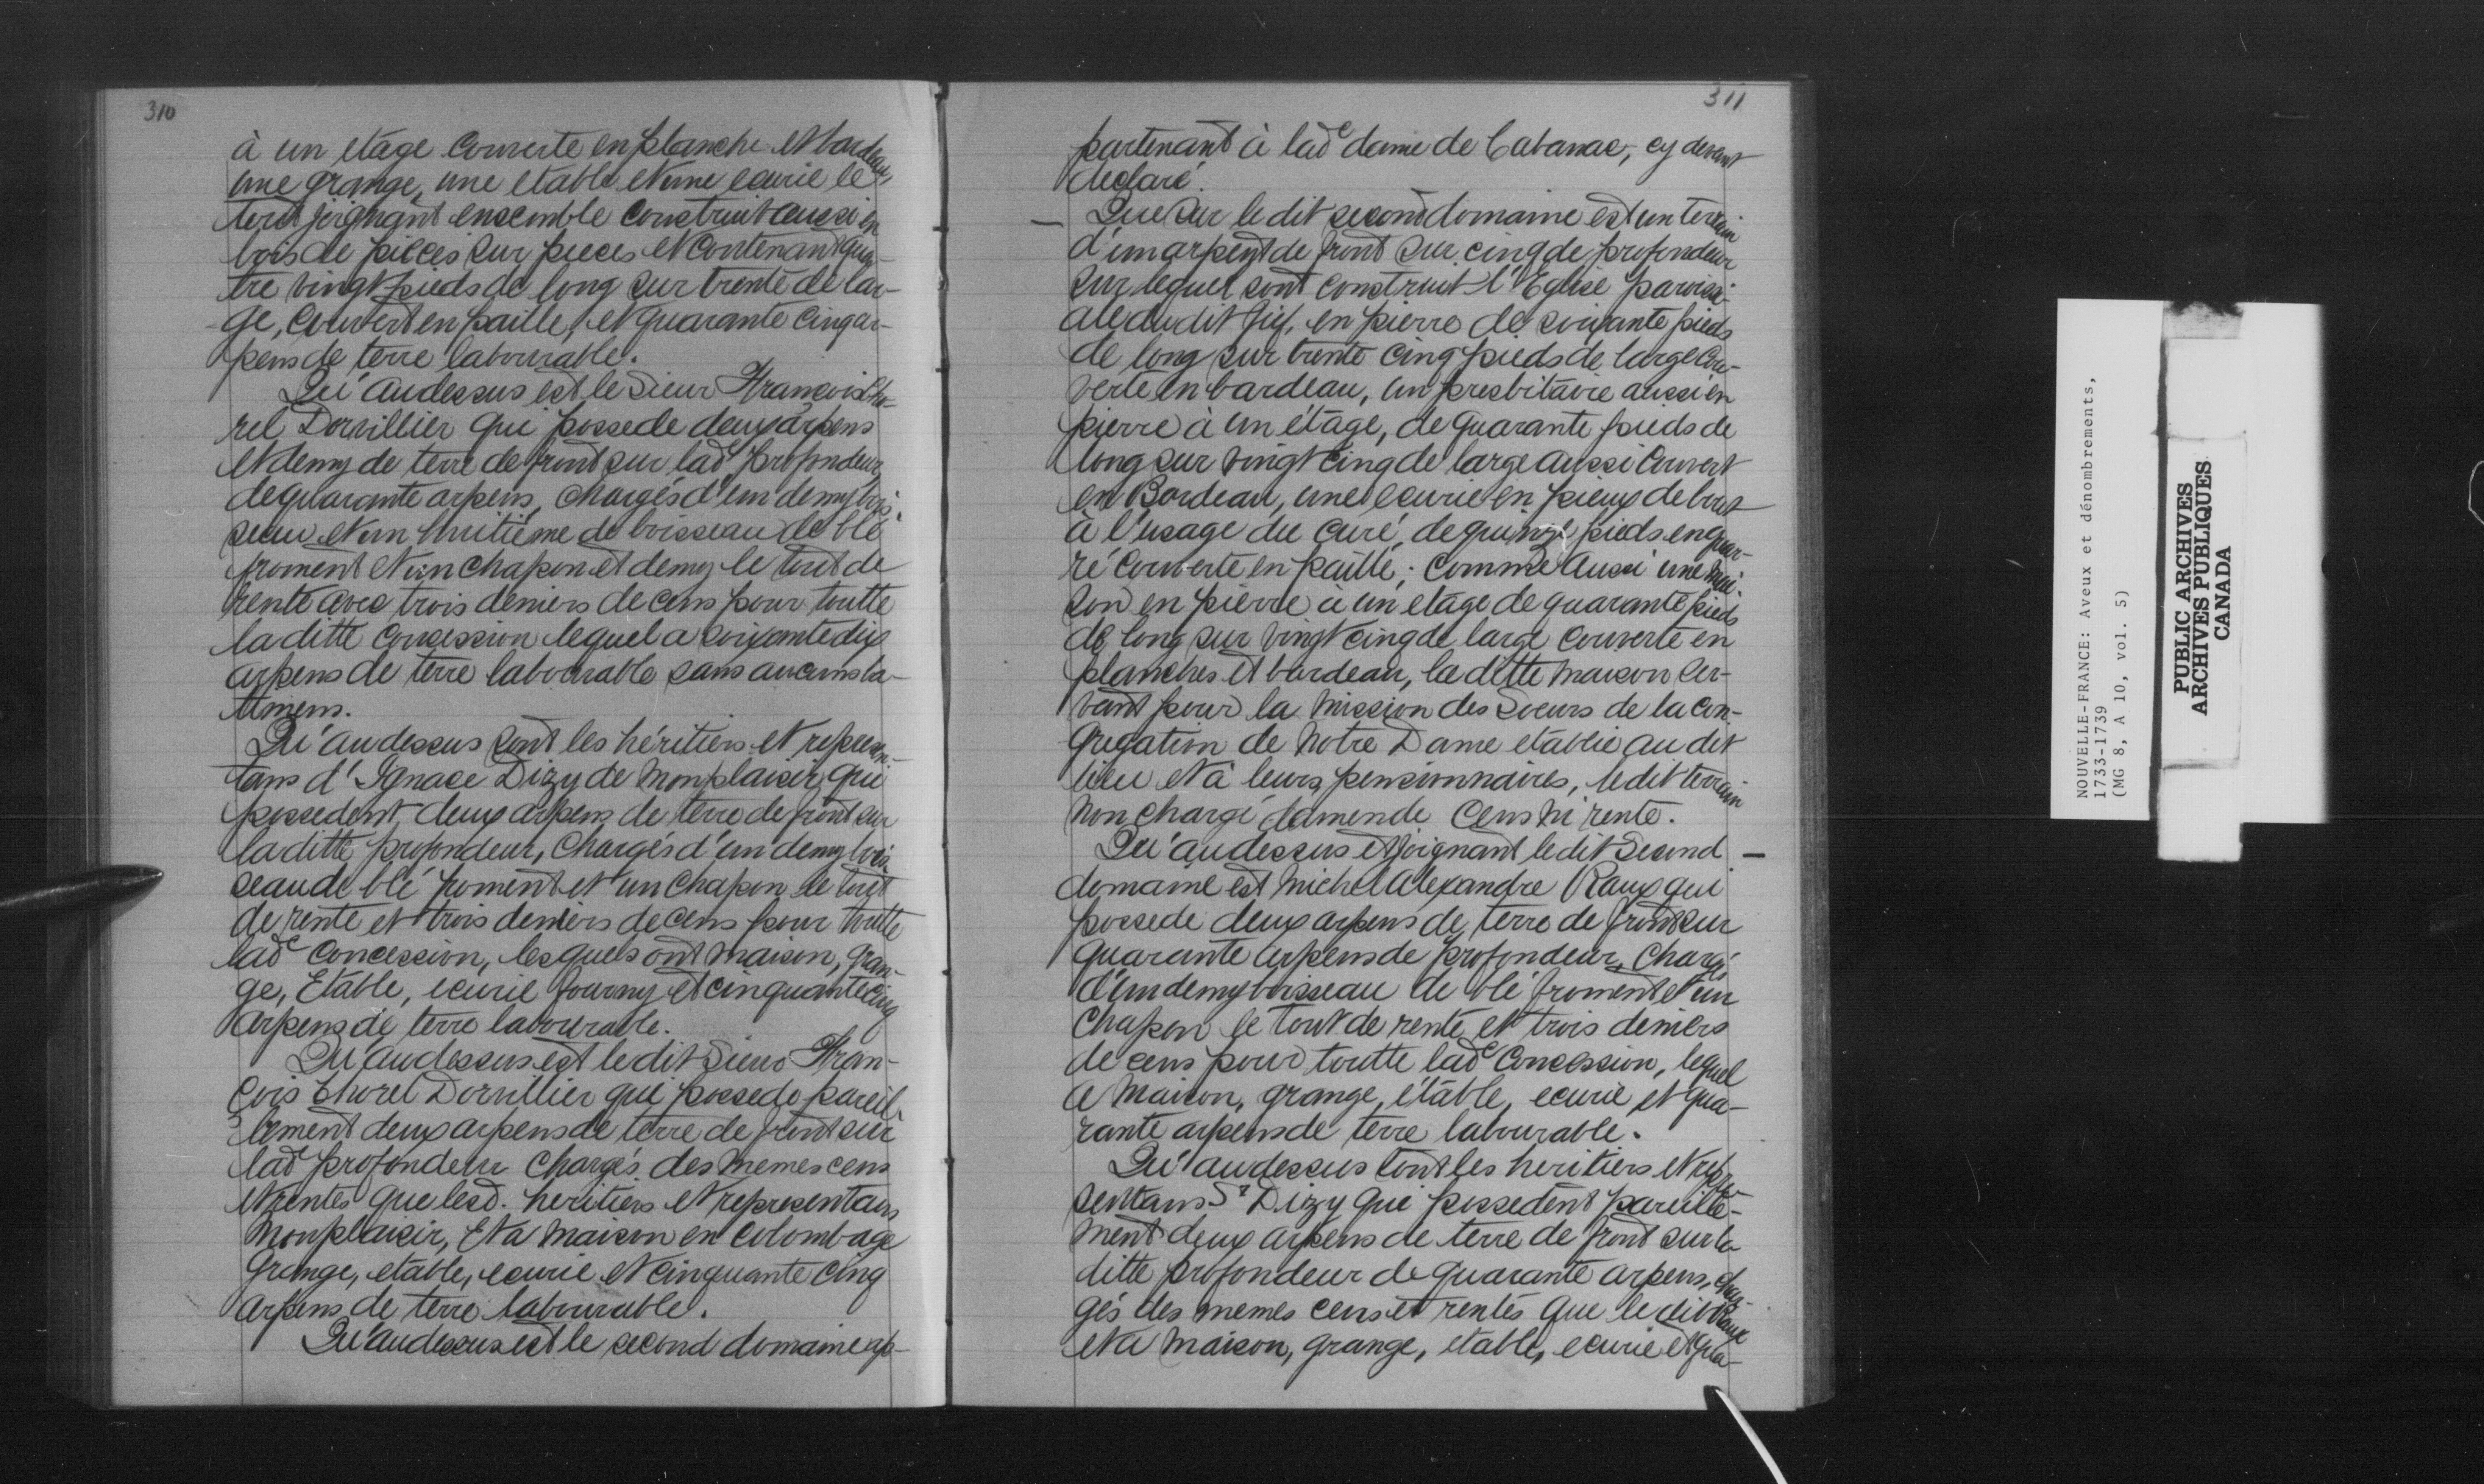 310
à un etage Couverte en planche et bardeau,
une grange, une etable et une ecurie le
tout joignant ensemble construit aussi en
bois de pieces sur pieces et contenant qua-
tre vingt pieds de long sur trente de lar-
ge, Couvert en paille, et quarante cinq ar-
pens de terre labourable.
Qu'audessus est le Sieur François Cho-
rel Dorvillier qui possede deux arpens
et demy de terre de front sur lade profondeur
de quarante arpens, chargés d'un demy bois-
seau et un huitiéme de boisseau de blé
froment et un chapon et demy le tout de
rente avec trois deniers de cens pour toutte
la ditte concession lequel a soixante dix
arpens de terre labourable sans aucuns ba-
timens.
Qu'audessus sont les héritiers et represen-
tans d'Ignace Dizy de Monplaisir, qui
possedent deux arpens de terre de front sur
la ditte profondeur, Chargés d'un demy bois-
seau de blé froment et un chapon le tout
de rente et trois deniers de cens pour toutte
lade Concession, lesquels ont maison, gran-
ge, Etable, ecurie fourny et cinquante cinq
arpens de terre labourable.
Qu'audessus est le dit Sieur Fran-
çois Chorel Dorvillier qui possede pareil-
lement deux arpens de terre de front sur
lade profondeur Chargés des memes cens
et rentes que lesd. heritiers et representans
Monplaisir, Et a maison en colombage
Grange, etable, ecurie et cinquante cinq
arpens de terre labourable.
Qu'audessus est le second domaine ap-
311
partenant à lade dame de Cabanac, cy devant
declaré.
Que sur le dit second domaine est un terrain
d'un arpent de front sur cinq de profondeur
sur lequel sont construit l'Eglise paroissi-
ale dudit fief, en pierre de soixante pieds
de long sur trente cinq pieds de large Cou-
verte en bardeau, un presbitaire aussi en
pierre à un étage, de quarante pieds de
long sur vingt cinq de large aussi Couvert
en Bardeau, une ecurie en pieux de bout
à l'usage du curé, de quinze pieds en quar-
ré couverte en paille; Comme aussi une mai-
son en pierre à un etage de quarante pieds
de long sur vingt cinq de large couverte en
planches et bardeau, la ditte maison ser-
vant pour la mission des Soeurs de la Con-
gregation de Notre Dame etablie au dit
lieu et à leurs pensionnaires, le dit terrain
non chargé damende Cens ni rente.
Qu'audessus et joignant le dit Second
domaine est Michel Alexandre Raux qui
possede deux arpens de terre de front sur
quarante arpens de profondeur, chargés
d'un demy boisseau de blé froment et un
Chapon le tout de rente et trois deniers
de cens pour toutte lade Concession, lequel
a Maison, grange, étable, ecurie et qua-
rante arpens de terre labourable.
Qu'audessus sont les heritiers et repre
sentans Sr Dizy qui possedent pareille-
ment deux arpens de terre de front sur la
ditte profondeur de quarante arpens, char-
gés des memes cens et rentes que le dit Raux
et a Maison, grange, etable, ecurie et qua-
NOUVELLE-FRANCE: Aveux et dénombrements,
1733-1739
(MG 8, A 10, vol. 5)
PUBLIC ARCHIVES
ARCHIVES PUBLIQUES
CANADA